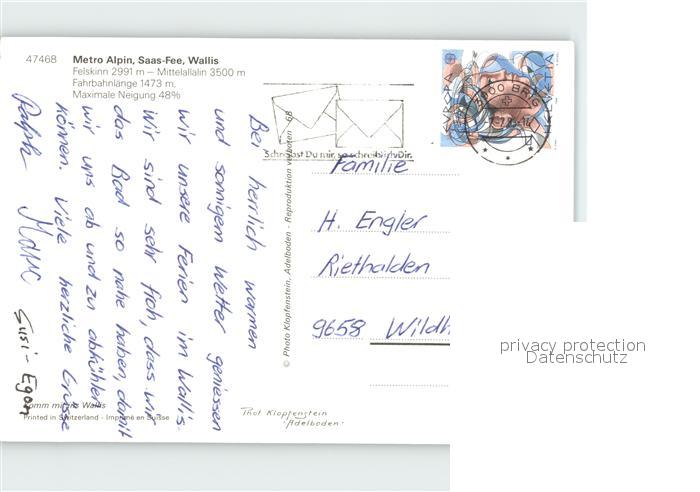 47468
Metro Alpin, Saas-Fee, Wallis
Felskinn 2991 m – Mittelallalin 3500 m
Fahrbahnlänge 1473 m,
Maximale Neigung 48%
Bei herrlich warmen
und sonnigem Wetter geniessen
wir unsere Ferien im Wallis.
Wir sind sehr froh, dass wir
das Bad so nahe haben, damit
wir uns ab und zu abkühlen
können. Viele herzliche Grüsse
Ralph Marc
Susi - Egon
Komm mit ins Wallis
Printed in Switzerland - Imprimé en Suisse
© Photo Klopfenstein, Adelboden - Reproduktion verboten
Schreibst Du mir, so schreib ich Dir.
HELVETIA
3900 BRIG
Familie
H. Engler
Riethalden
9658 Wildh
Thot Klopfenstein
·Adelboden·
privacy protection
Datenschutz